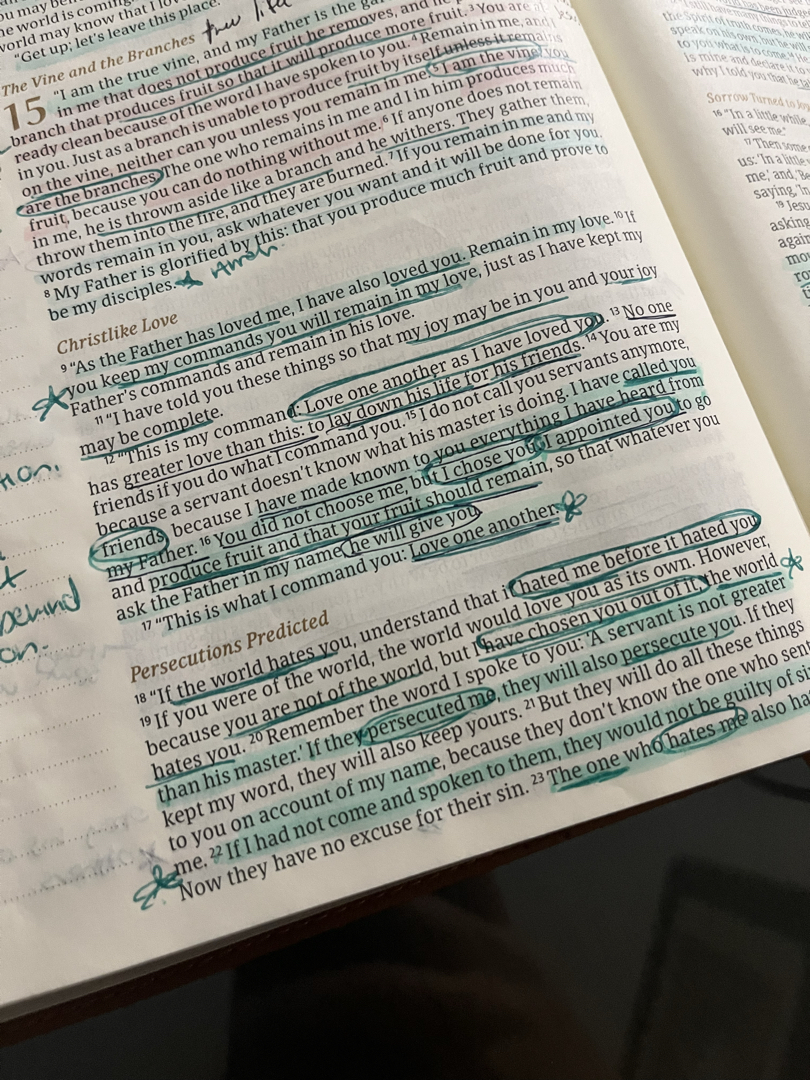 ou may be
world is coming.
world may know that I
"Get up; let's leave this place.
The Vine and the Branches
true
15 "I am the true vine, and my Father is the gar
in me that does not produce fruit he removes, and he p
branch that produces fruit so that it will produce more fruit. 3 You are al
ready clean because of the word I have spoken to you. 4 Remain in me, and I
in you. Just as a branch is unable to produce fruit by itself unless it remains
on the vine, neither can you unless you remain in me. 5 I am the vine; you
are the branches. The one who remains in me and I in him produces much
fruit, because you can do nothing without me. 6 If anyone does not remain
in me, he is thrown aside like a branch and he withers. They gather them,
throw them into the fire, and they are burned. 7 If you remain in me and my
words remain in you, ask whatever you want and it will be done for you.
8 My Father is glorified by this: that you produce much fruit and prove to
be my disciples.
Christlike Love
9 "As the Father has loved me, I have also loved you. Remain in my love. 10 If
you keep my commands you will remain in my love, just as I have kept my
Father's commands and remain in his love.
11 "I have told you these things so that my joy may be in you and your joy
may be complete.
12 "This is my command: Love one another as I have loved you. 13 No one
has greater love than this: to lay down his life for his friends. 14 You are my
friends if you do what I command you. 15 I do not call you servants anymore,
because a servant doesn't know what his master is doing. I have called you
friends, because I have made known to you everything I have heard from
my Father. 16 You did not choose me, but I chose you. I appointed you to go
and produce fruit and that your fruit should remain, so that whatever you
ask the Father in my name, he will give you.
17 "This is what I command you: Love one another.
behind
on.
Persecutions Predicted
18 "If the world hates you, understand that it hated me before it hated you.
19 If you were of the world, the world would love you as its own. However,
because you are not of the world, but I have chosen you out of it, the world
hates you. 20 Remember the word I spoke to you: 'A servant is not greater
than his master.' If they persecuted me, they will also persecute you. If they
kept my word, they will also keep yours. 21 But they will do all these things
to you on account of my name, because they don't know the one who sent
me. 22 If I had not come and spoken to them, they would not be guilty of sin
Now they have no excuse for their sin. 23 The one who hates me also ha
the Spirit of truth comes, he w
speak on his own, but he w
to you what is to come.
is mine and declare
why I told you that he
Sorrow Turned to
16 "In a little while,
will see me."
17 Then some
us: 'In a little
me,' and, 'Be
saying, 'In
19 Jesu
asking
again